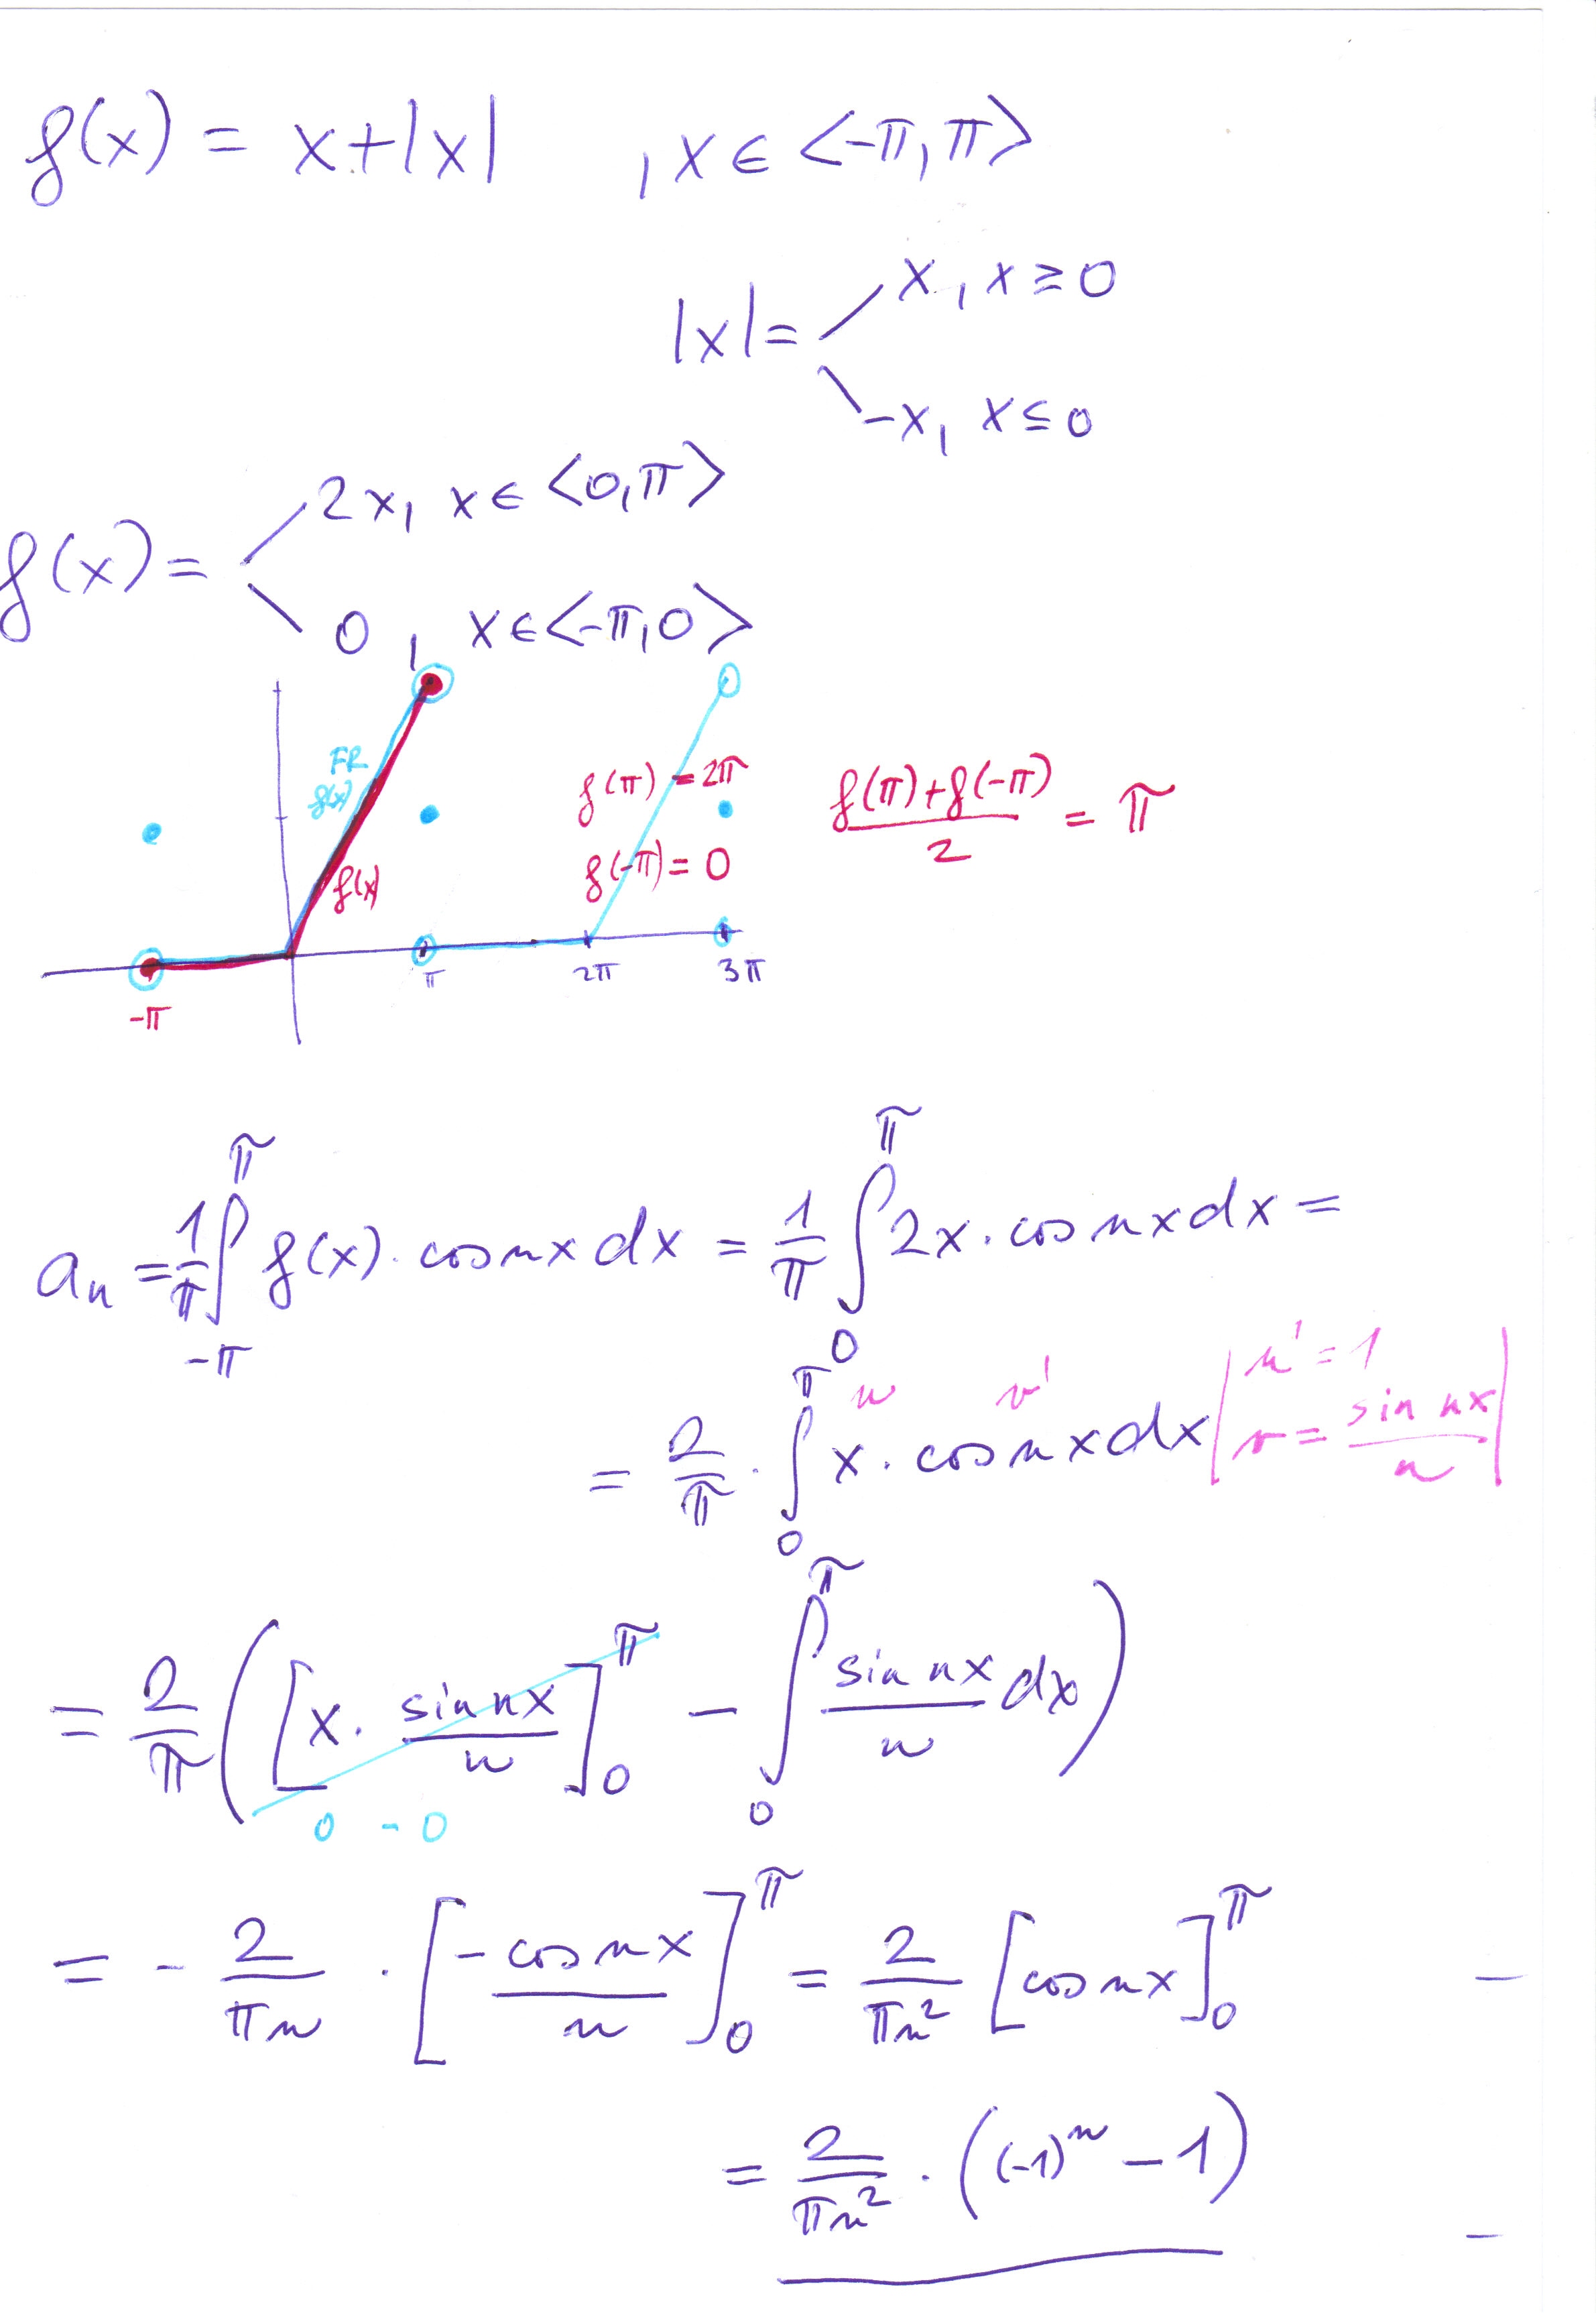 f(x) = x+|x| , x ∈ <-π, π>
|x| = x, x ≥ 0
-x, x ≤ 0
f(x) = 2x, x ∈ <0, π>
0, x ∈ <-π, 0>
FR
f(x)
f(x)
f(π) = 2π
f(-π) = 0
(f(π)+f(-π))/2 = π
-π π 2π 3π
a_n = 1/π ∫_{-π}^{π} f(x) · cos nx dx = 1/π ∫_0^π 2x · cos nx dx =
u v' u' = 1
= 2/π · ∫_0^π x · cos nx dx | v = sin nx / n |
= 2/π ( [x · sin nx / n]_0^π - ∫_0^π sin nx / n dx )
0 - 0
= - 2/(πn) · [- cos nx / n]_0^π = 2/(πn²) [cos nx]_0^π
= 2/(πn²) · ((-1)^n - 1)